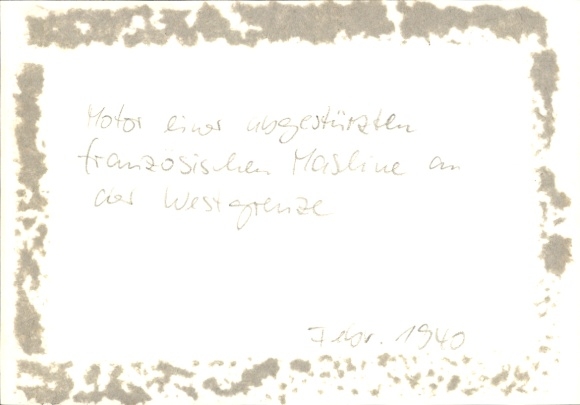 Motor einer abgestürzten
französischen Mashine an
der Westgrenze
Febr. 1940